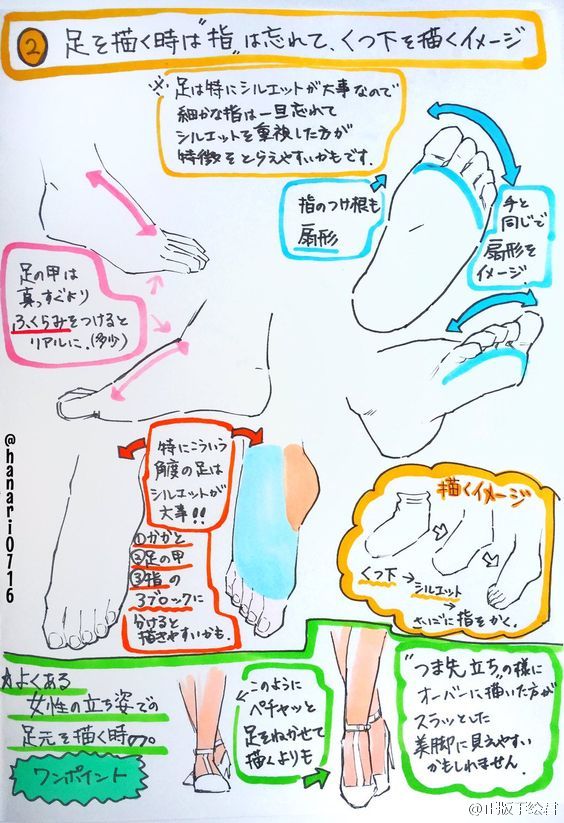 ② 足を描く時は"指"は忘れて、くつ下を描くイメージ
※足は特にシルエットが大事なので
細かな指は一旦忘れて
シルエットを重視した方が
特徴をとらえやすいかもです.
指のつけ根も
扇形
手と
同じで
扇形を
イメージ.
足の甲は
真っすぐより
ふくらみをつけると
リアルに.(多少)
@hanari0716
特にこういう
角度の足は
シルエットが
大事!!
①かかと
②足の甲
③指の
3ブロックに
分けると
描きやすいかも.
描くイメージ
くつ下→シルエット
→
さいごに指をかく.
☆よくある
女性の立ち姿での
足元を描く時の。
ワンポイント
このように
ペチャッと
足をねかせて
描くよりも
"つま先立ち"の様に
オーバーに描いた方が
スラッとした
美脚に見えやすい
かもしれません.
@正版手绘君